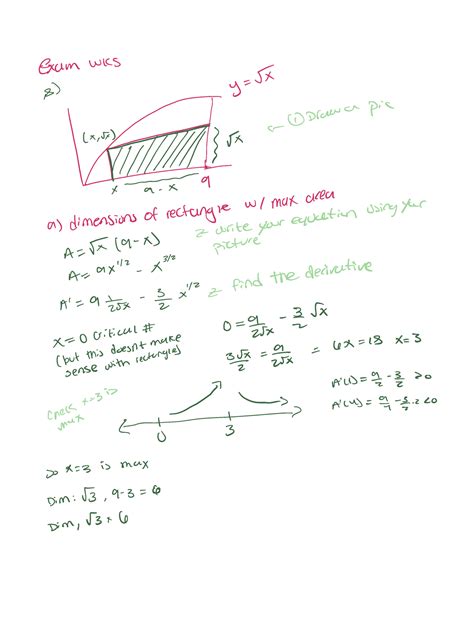 Exam wks
8)
y = √x
(x, √x)
← ① Draw a pic
√x
x
9 - x
9
a) dimensions of rectangle w/ max area
A = √x (9-x)
write your equation using your
picture
A = 9x^1/2 - x^3/2
A' = 9 1/2√x - 3/2 x^1/2
find the derivative
x = 0 critical #
(but this doesn't make
sense with rectangle)
0 = 9/2√x - 3/2 √x
3√x/2 = 9/2√x = 6x = 18 x = 3
A'(1) = 9/2 - 3/2 > 0
check x=3 is
max
0
3
So x=3 is max
Dim: √3, 9-3 = 6
Dim, √3 × 6